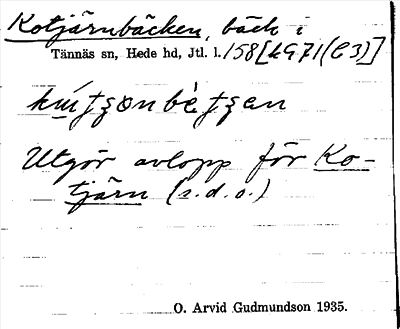 Kotjärnbäcken, bäck i
Tännäs sn, Hede hd, Jtl. l. 158 [kG 71 (C3)]
Utgör avlopp för Ko-
tjärn (s.d.o.)
O. Arvid Gudmundson 1935.